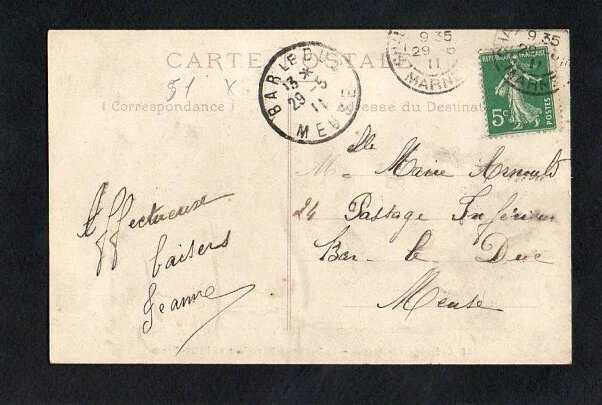 CARTE POSTALE
51 X
(Correspondance)
Adresse du Destinat
BAR LE DUC
13 *
29 - 5
11
MEUSE
9 35
29 - 5
11
MARNE
9 35
29
11
MARNE
REPUBLIQUE FRANÇAISE
5c
POSTES
Affectueux
baisers
Jeanne
M
elle Marie Arnould
24 Passage Inférieur
Bar le Duc
Meuse